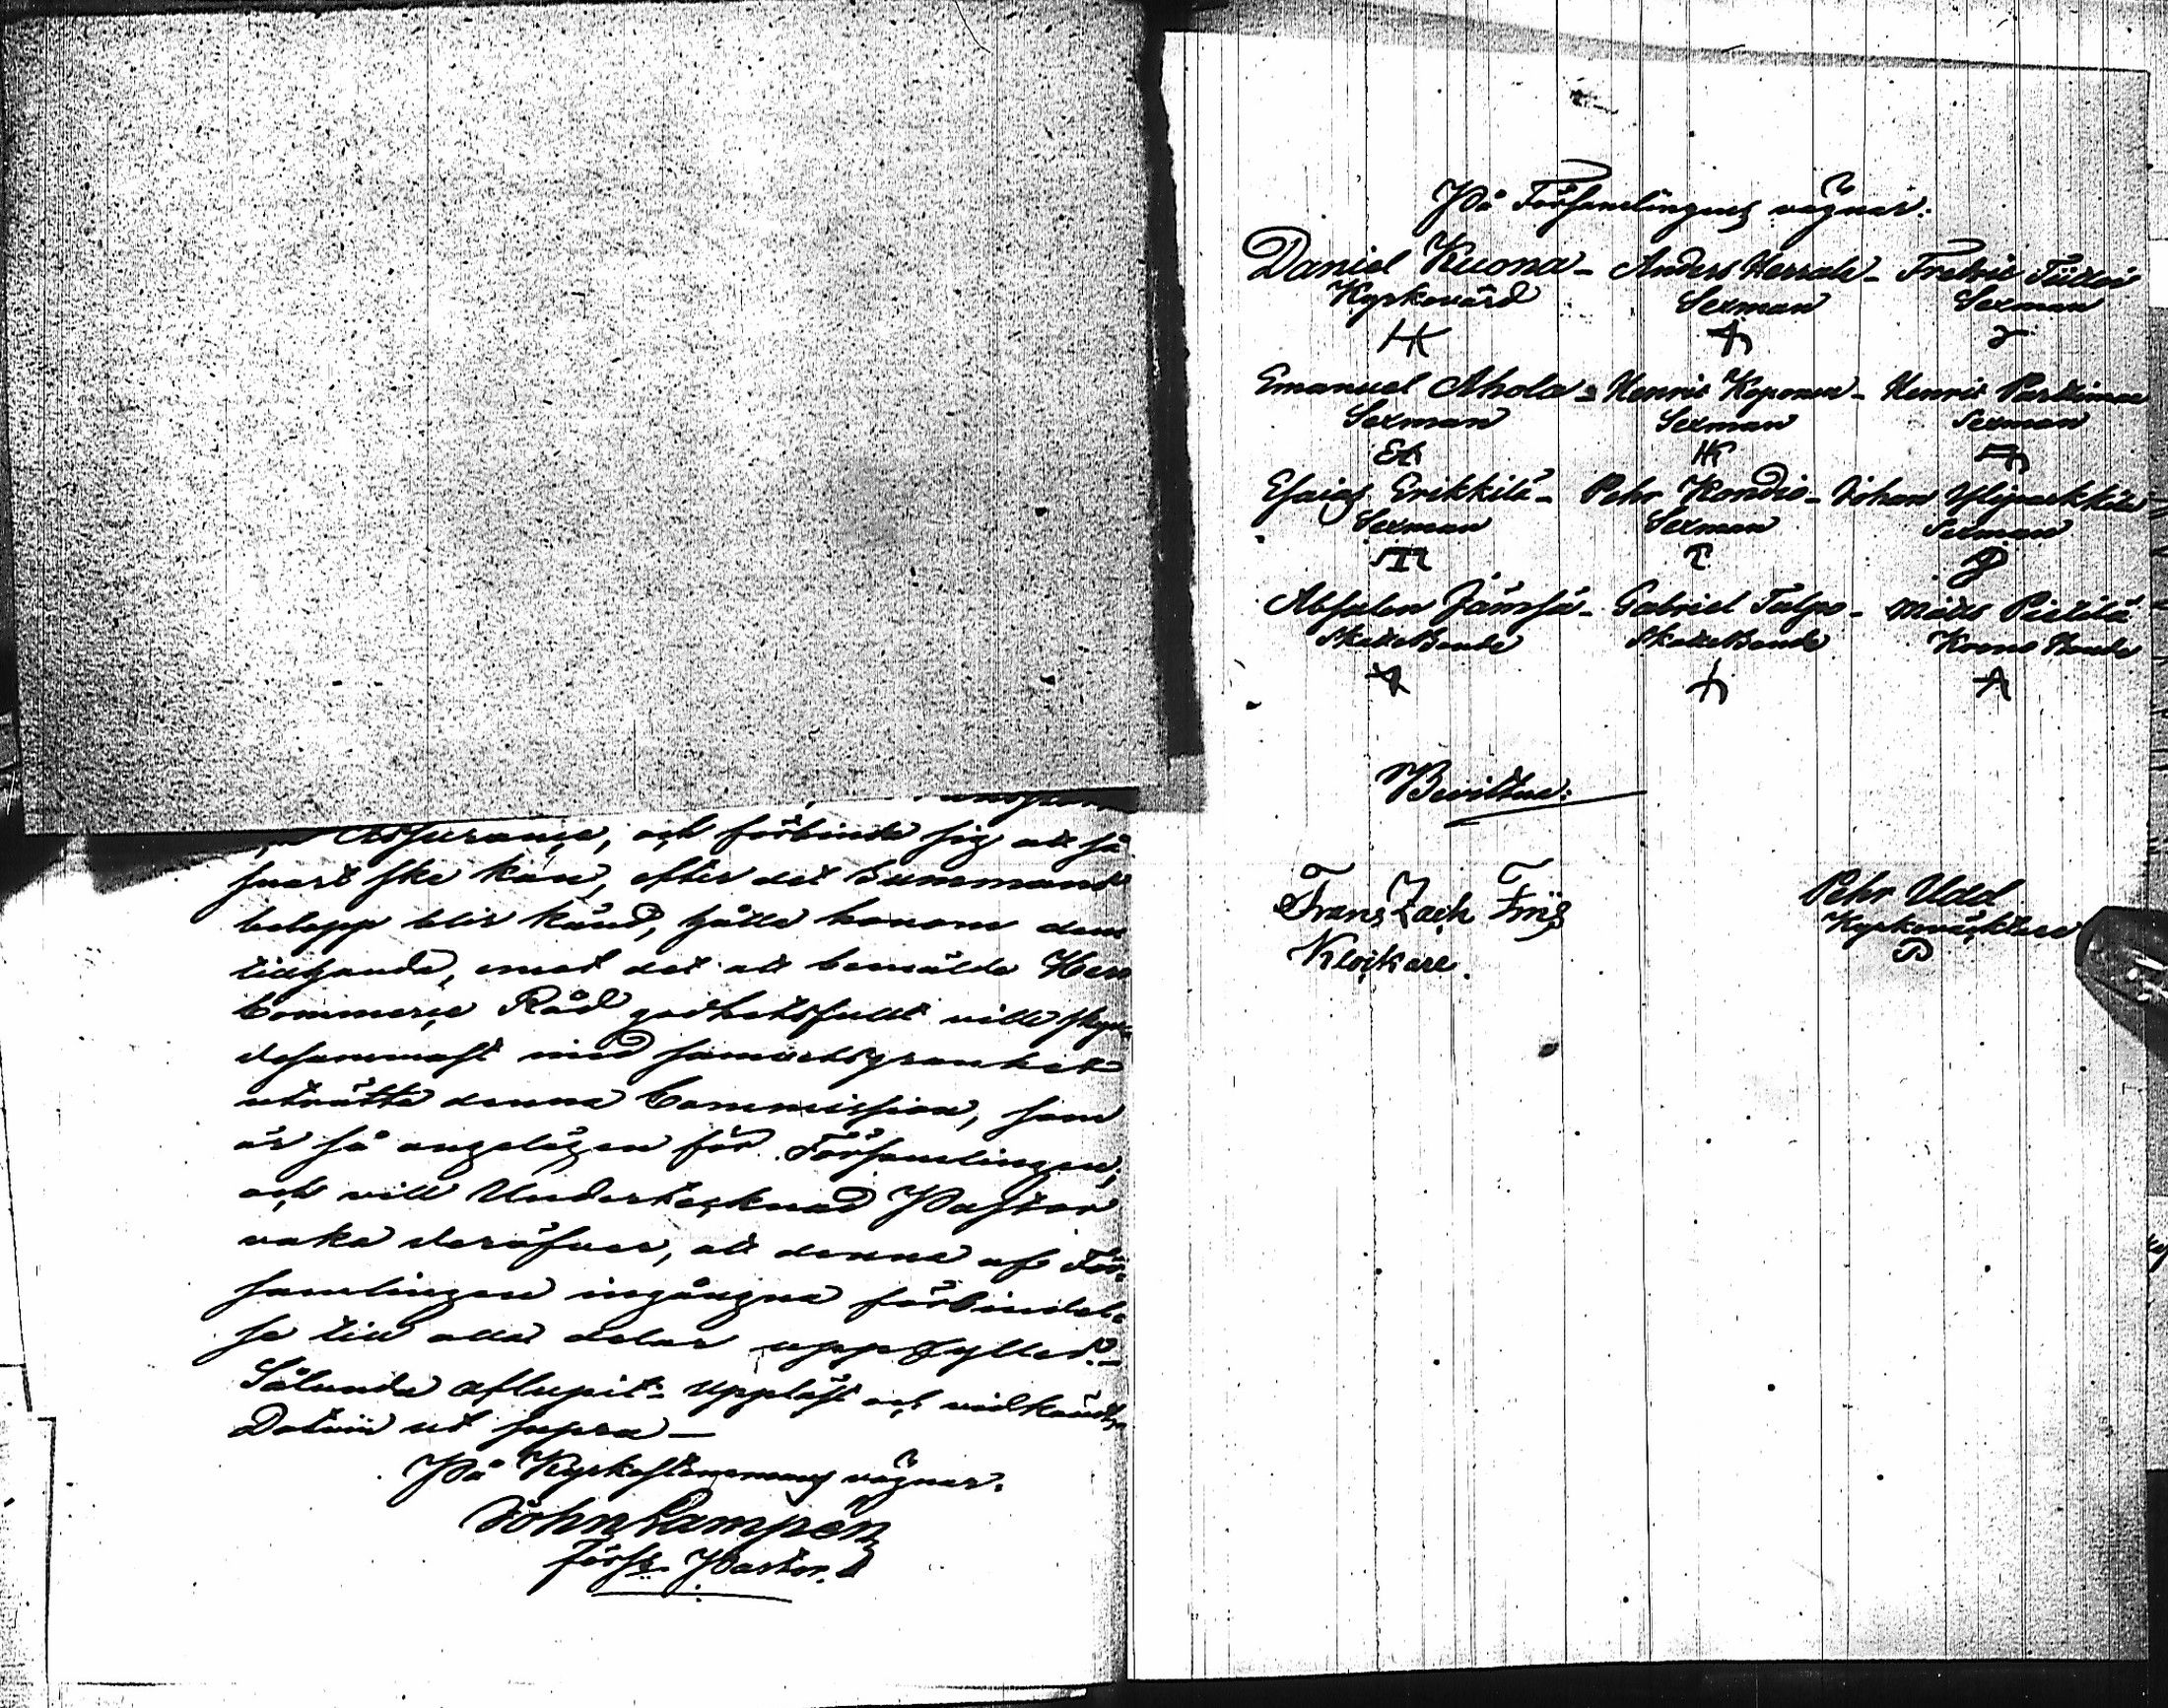 Assurance, och förbinda sig att så
snart ske kan, efter det Summans
belopp blir känd, gälla honom dem
tillhanda, emot det att bemälde Herr
Commerce Råd godhetsfullt ville
desammast med samvetsgranhet
uträtta denna Commission, som
är så angelägen för Församlingen,
och vill Undertecknad Pastor
vaka deröfver, att denna af För-
samlingen ingångna förbindel-
se till alla delar uppfylles.-
Sålunda aflupit- Uppläst och vidkändt,
Datum ut supra —
På Kyrkostämmans vägnar.
Johan Lampén
Förs. Pastor.
På Församlingens vägnar:
Daniel Kuona - Anders - Fredric
Kyrkovärd Sexman Sexman
Emanuel Ahola - Henric Koponen - Henric Partimaa
Sexman Sexman Sexman
EA HK
Esaias Erikkilä - Pehr Kondio - Johan
Sexman Sexman Sexman
Absalon Jämsä - Gabriel Tulpo - Mats Pietilä
SkatteBonde SkatteBonde Krono Bonde
Bevittna:
Frans Zach Friis Pehr Udd
Klockare. Kyrkoväcktare